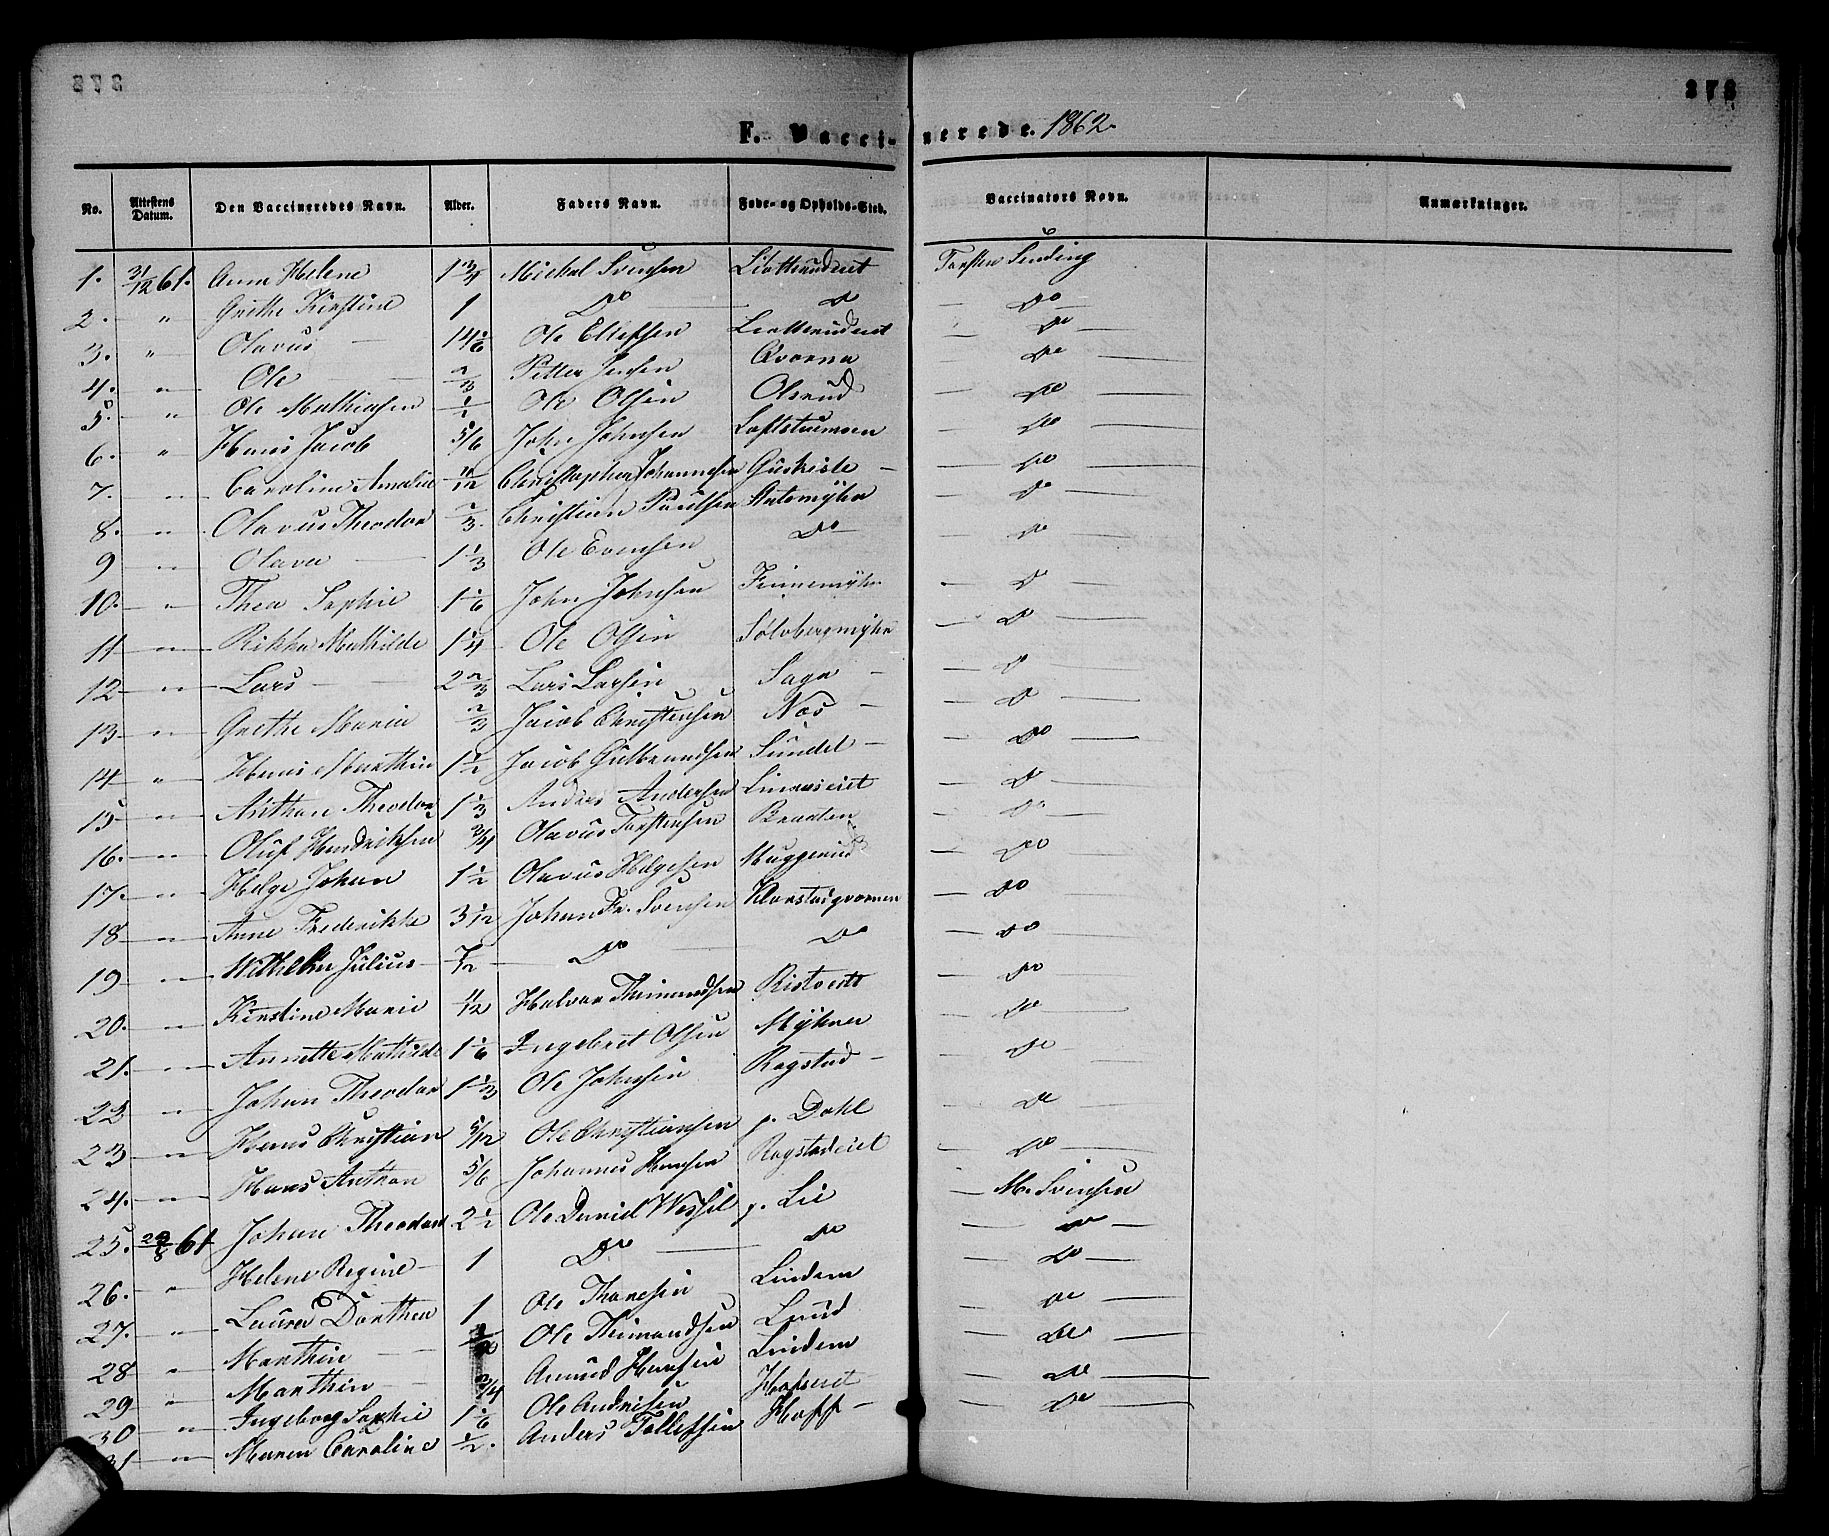 378
F. Vaccinerede. 1862.
No. | Attestens Datum. | Den Vaccineredes Navn. | Alder. | Faders Navn. | Føde- og Opholds-Sted. | Vaccinators Navn. | Anmærkninger.
1. 31/12 61. Anne Helene 1 3/4 Mickal Svensen Liotterudeiet Torsten Sinding
2. — " Grethe Kirstine 1 Do — Do — Do —
3. — " Olavus — 14 1/6 Ole Ellefsen Liotterudeiet — Do —
4. — " Ole — 2/3 Petter Jensen Qvorna — Do —
5. — " Ole Mathiasen 1/1 Ole Olsen Olsrud — Do —
6. — " Hans Jacob 5/6 John Johnsen Loftstuemoen — Do —
7. — " Caroline Amalie 11/12 Christopher Johannesen Guskiste — Do —
8. — " Olavus Theodor 2/3. Christian Paulsen Antemÿhr — Do —
9 — " Olava — 1 1/3 Ole Evensen Do — Do —
10. — " Thea Sophie 1 1/6 John Johnsen Finnemÿhr — Do —
11 — " Rikka Mathilde 1 1/4 Ole Olsen Sølvbergmÿhr — Do —
12 — " Lars — 2 2/3 Lars Larsen Saga — Do —
13 — " Grethe Maria 2/3 Jacob Christensen Næs — Do —
14 — " Hans Marthin 1 1/2 Jacob Gulbrandsen Sundet — Do —
15 — " Anthon Theodor 1 1/3 Anders Andersen Linnæseiet — Do —
16. — " Oluf Hendriksen 3/4 Olavus Torstensen Braaten — Do —
17. — " Helge Johan 1 1/2 Olavus Helgesen Muggerud — Do —
18 — " Anne Frederikke 3 1/12 Johan Fr. Svensen Klonstadqvernen — Do —
19 — " Wilhelm Julius — 7/12 — Do — Do — Do —
20. — " Kirstine Marie 11/12 Halvor Thimandsen Ristvedt — Do —
21. — " Annette Mathilde 1 1/6 Ingebret Olsen Mÿhrer — Do —
22 — " Johan Theodor 1 1/3 Ole Johnsen Rogstad — Do —
23 — " Hans Christian 5/12 Ole Christiansen p. Dahl — Do —
24. — " Hans Anthon 5/6 Johannes Hansen Rogstadeiet — Do —
25. 29/8 61 Johan Theodor 2 1/2 Ole Daniel Wessel p. Lie — M. Svensen
26. — " Helene Regine — 1 Do — Do — Do —
27. — " Laura Dorthea 1 Ole Thoresen Lindem — Do —
28 — " Marthin — Ole Thimandsen Lund — Do —
29 — " Marthin — 3/4 Amund Hansen Lindem — Do —
30 — " Ingeborg Sophie 1 1/6 Ole Andresen Hofseiet — Do —
31 — " Maren Caroline 1/2. Anders Tollefsen Hoff — Do —